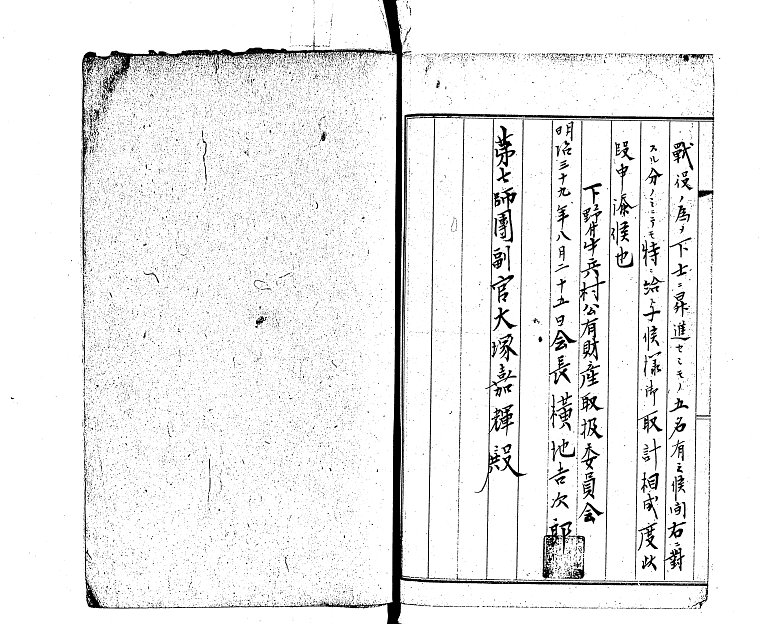 戰役ノ為メ下士ニ昇進セシモノ五名有之候間右ニ對
スル分ノミニテモ特ニ給与候様御取計相成度此
段申添候也
下野幌屯田兵村公有財産取扱委員会
明治三十九年八月二十五日会長横地吉次郎
第七師團副官大塚嘉輝殿